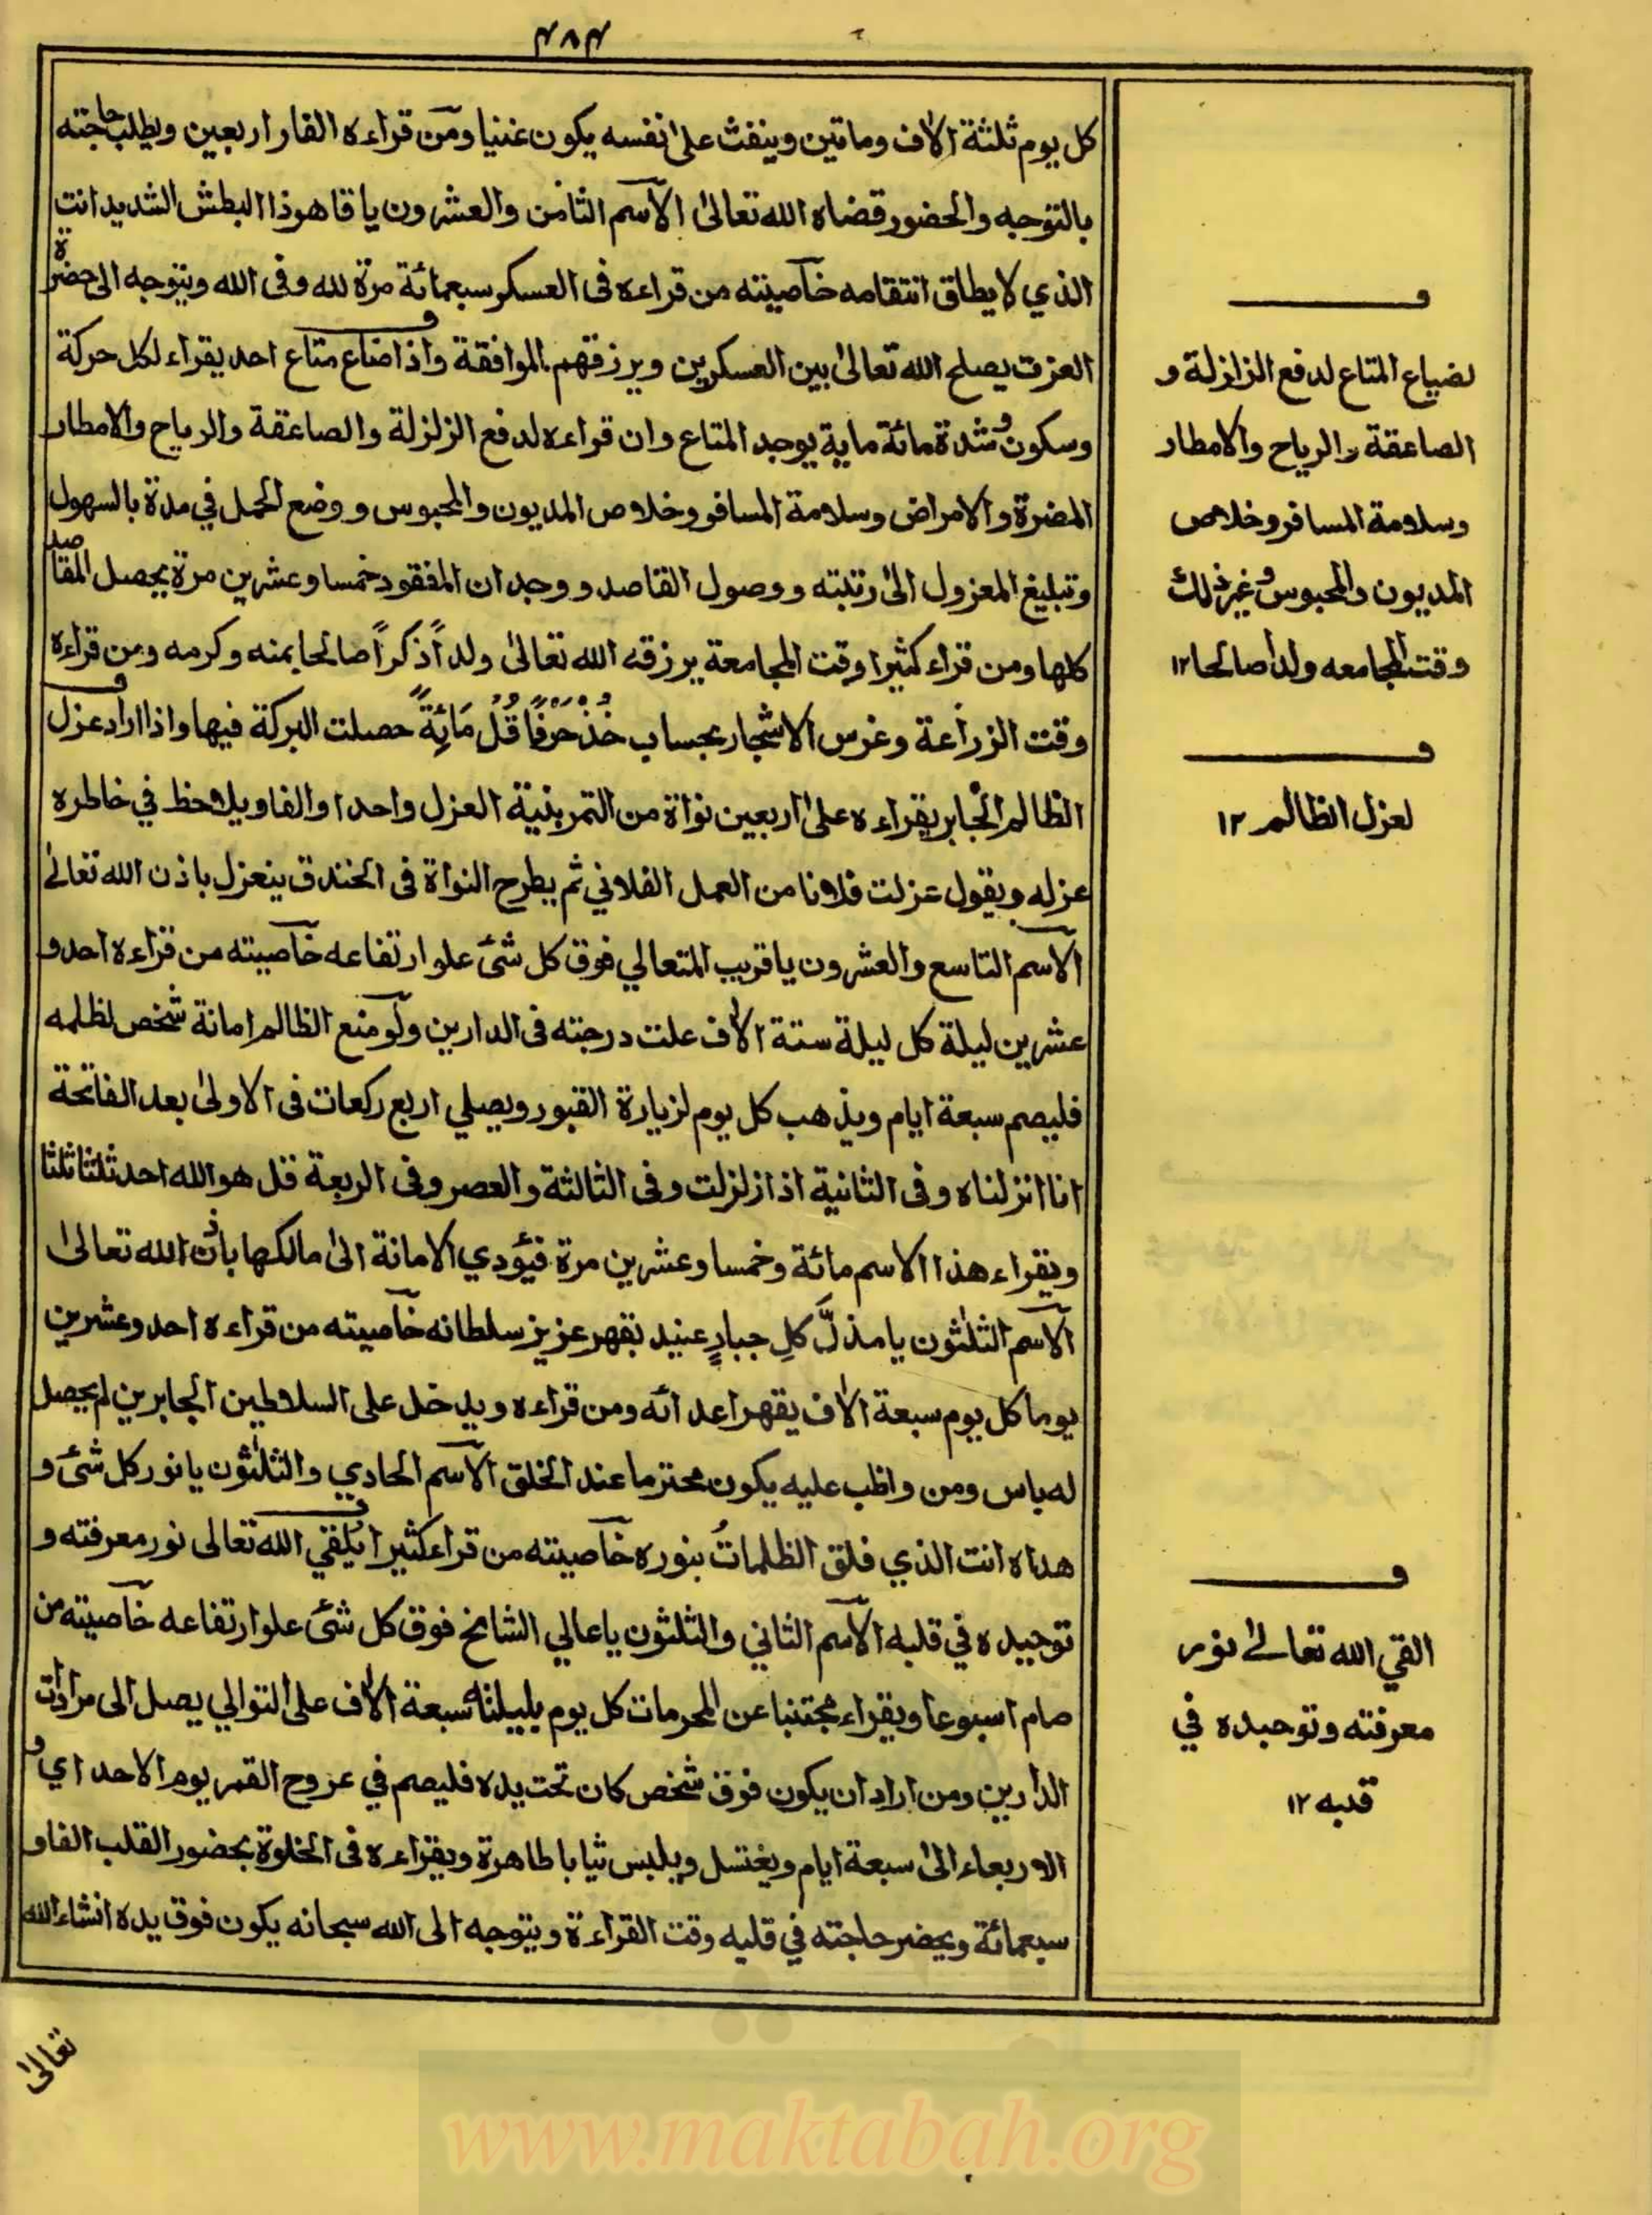 ٤٨٤
كل يوم ثلثة الاف وماتين وينفث على نفسه يكون غنيا ومن قراءه الفار اربعين ويطلب حاجته
بالتوجه والحضور قضاه الله تعالى الاسم الثامن والعشرون يا قاهر ذا البطش الشديد انت
الذي لا يطاق انتقامه خاصيته من قراءه فى العسكر سبعمائة مرة لله وفى الله ويتوجه الى حضرة
العزت يصلح الله تعالى بين العسكرين ويرزقهم الموافقة واذا ضاع متاع احد يقراء لكل حركة
وسكون وشدة مائة ماية يوجد المتاع وان قراءه لدفع الزلزلة والصاعقة والرياح والامطار
المضرة والامراض وسلامة المسافر وخلاص المديون والمحبوس و وضع الحمل في مدة بالسهول
وتبليغ المعزول الى رتبته و وصول القاصد و وجدان المفقود خمسا وعشرين مرة يحصل المقاصد
كلها ومن قراء كثيرا وقت المجامعة يرزقه الله تعالى ولداً ذكراً صالحا بمنه وكرمه ومن قراءه
وقت الزراعة وغرس الاشجار بحساب خُذْ حَرْفًا قُلْ مَائِةً حصلت البركة فيها واذا اراد عزل
الظالم الجابر يقراءه على اربعين نواة من التمر بنية العزل واحدا والفا ويلاحظ في خاطره
عزله ويقول عزلت فلانا من العمل الفلاني ثم يطرح النواة فى الخندق ينعزل باذن الله تعالى
الاسم التاسع والعشرون يا قريب المتعالي فوق كل شئ علو ارتفاعه خاصيته من قراءه احد و
عشرين ليلة كل ليلة ستة الاف علت درجته فى الدارين ولو منع الظالم امانة شخص لظلمه
فليصم سبعة ايام ويذهب كل يوم لزيارة القبور ويصلي اربع ركعات فى الاولى بعد الفاتحة
انا انزلناه وفى الثانية اذا زلزلت وفى الثالثة والعصر وفى الربعة قل هو الله احد ثلثا ثلثا
ويقراء هذا الاسم مائة وخمسا وعشرين مرة فيؤدي الامانة الى مالكها باذن الله تعالى
الاسم الثلثون يا مذلَّ كلِ جبارٍ عنيد بقهر عزيز سلطانه خاصيته من قراءه احد وعشرين
يوما كل يوم سبعة الاف يقهر اعدائه ومن قراءه ويدخل على السلاطين الجابرين لم يحصل
له باس ومن واظب عليه يكون محترما عند الخلق الاسم الحادي والثلثون يا نور كل شئ و
هداه انت الذي فلق الظلماتُ بنوره خاصيته من قراء كثيرا يُلقي الله تعالى نور معرفته و
توحيده في قلبه الاسم الثاني والثلثون يا عالي الشامخ فوق كل شئ علو ارتفاعه خاصيته من
صام اسبوعا ويقراء مجتنبا عن المحرمات كل يوم بليلته سبعة الاف على التوالي يصل الى مرادات
الدارين ومن اراد ان يكون فوق شخص كان تحت يده فليصم في عروج القمر يوم الاحد اي و
الاربعاء الى سبعة ايام ويغتسل ويلبس ثيابا طاهرة ويقراءه فى الخلوة بحضور القلب الفاو
سبعمائة ويحضر حاجته في قلبه وقت القراءة ويتوجه الى الله سبحانه يكون فوق يده انشاء الله
تعالى
لضياع المتاع لدفع الزلزلة و
الصاعقة والرياح والامطار
وسلامة المسافر وخلاص
المديون والمحبوس وغير ذلك
وقت المجامعه ولدا صالحا ١٢
لعزل الظالم ١٢
القي الله تعالى نور
معرفته وتوحيده في
قلبه ١٢
www.maktabah.org